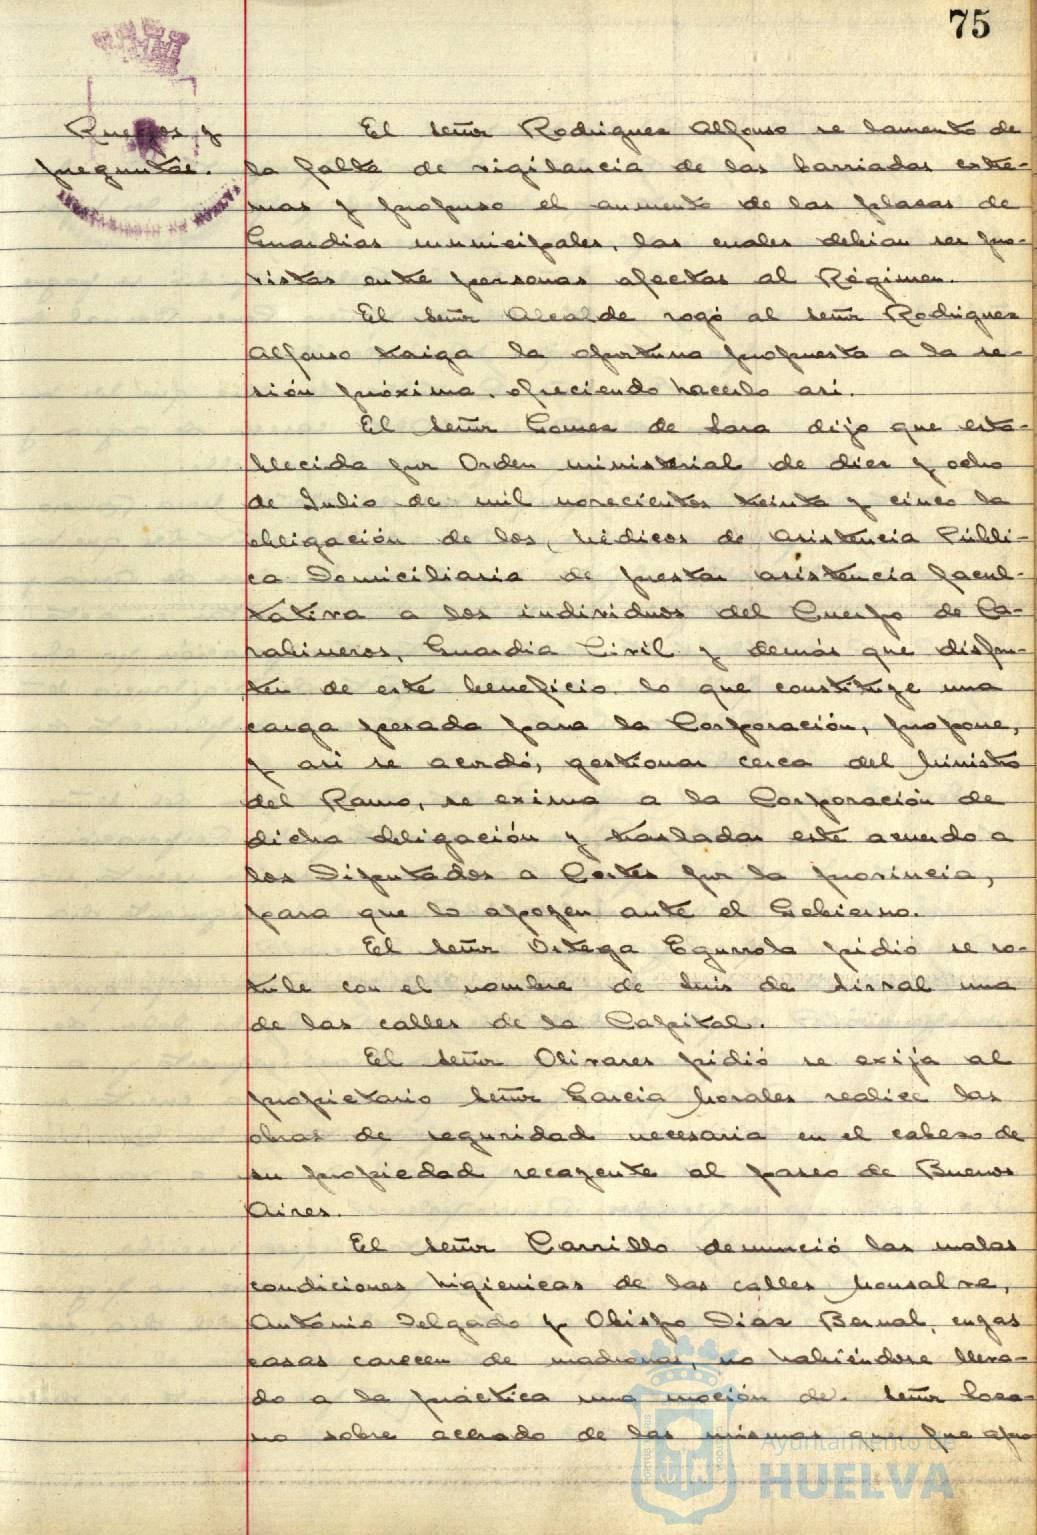 75
Ruegos y
preguntas.
El señor Rodriguez Alfonso se lamentó de
la falta de vigilancia de las barriadas extre-
mas y propuso el aumento de las plazas de
Guardias municipales, las cuales debian ser pro-
vistas entre personas afectas al Régimen.
El señor Alcalde rogó al señor Rodriguez
Alfonso traiga la oportuna propuesta a la se-
sión próxima, ofreciendo hacerlo asi.
El señor Gomez de Lara dijo que esta-
blecida por Orden ministerial de diez y ocho
de Julio de mil novecientos treinta y cinco la
obligación de los, Médicos de Asistencia Públi-
ca Domiciliaria de prestar asistencia facul-
tativa a los individuos del Cuerpo de Ca-
rabineros, Guardia Civil y demás que disfru-
ten de este beneficio lo que constituye una
carga pesada para la Corporación, propone,
y asi se acordó, gestionar cerca del Ministro
del Ramo, se exima a la Corporación de
dicha obligación y trasladar este acuerdo a
los Diputados a Cortes por la provincia,
para que lo apoyen ante el Gobierno.
El señor Ortega Egurrola pidió se ro-
tule con el nombre de Luis de Sirval una
de las calles de la Capital.
El señor Olivares pidió se exija al
propietario señor Garcia Morales realice las
obras de seguridad necesaria en el cabezo de
su propiedad recayente al paseo de Buenos
Aires.
El señor Carrillo denunció las malas
condiciones higienicas de las calles Monsalve,
Antonio Delgado y Obispo Diaz Bernal, cuyas
casas carecen de madronas, no habiéndose lleva-
do a la práctica una moción del señor Loza-
no sobre acerado de las mismas que fue apro
Ayuntamiento de
HUELVA